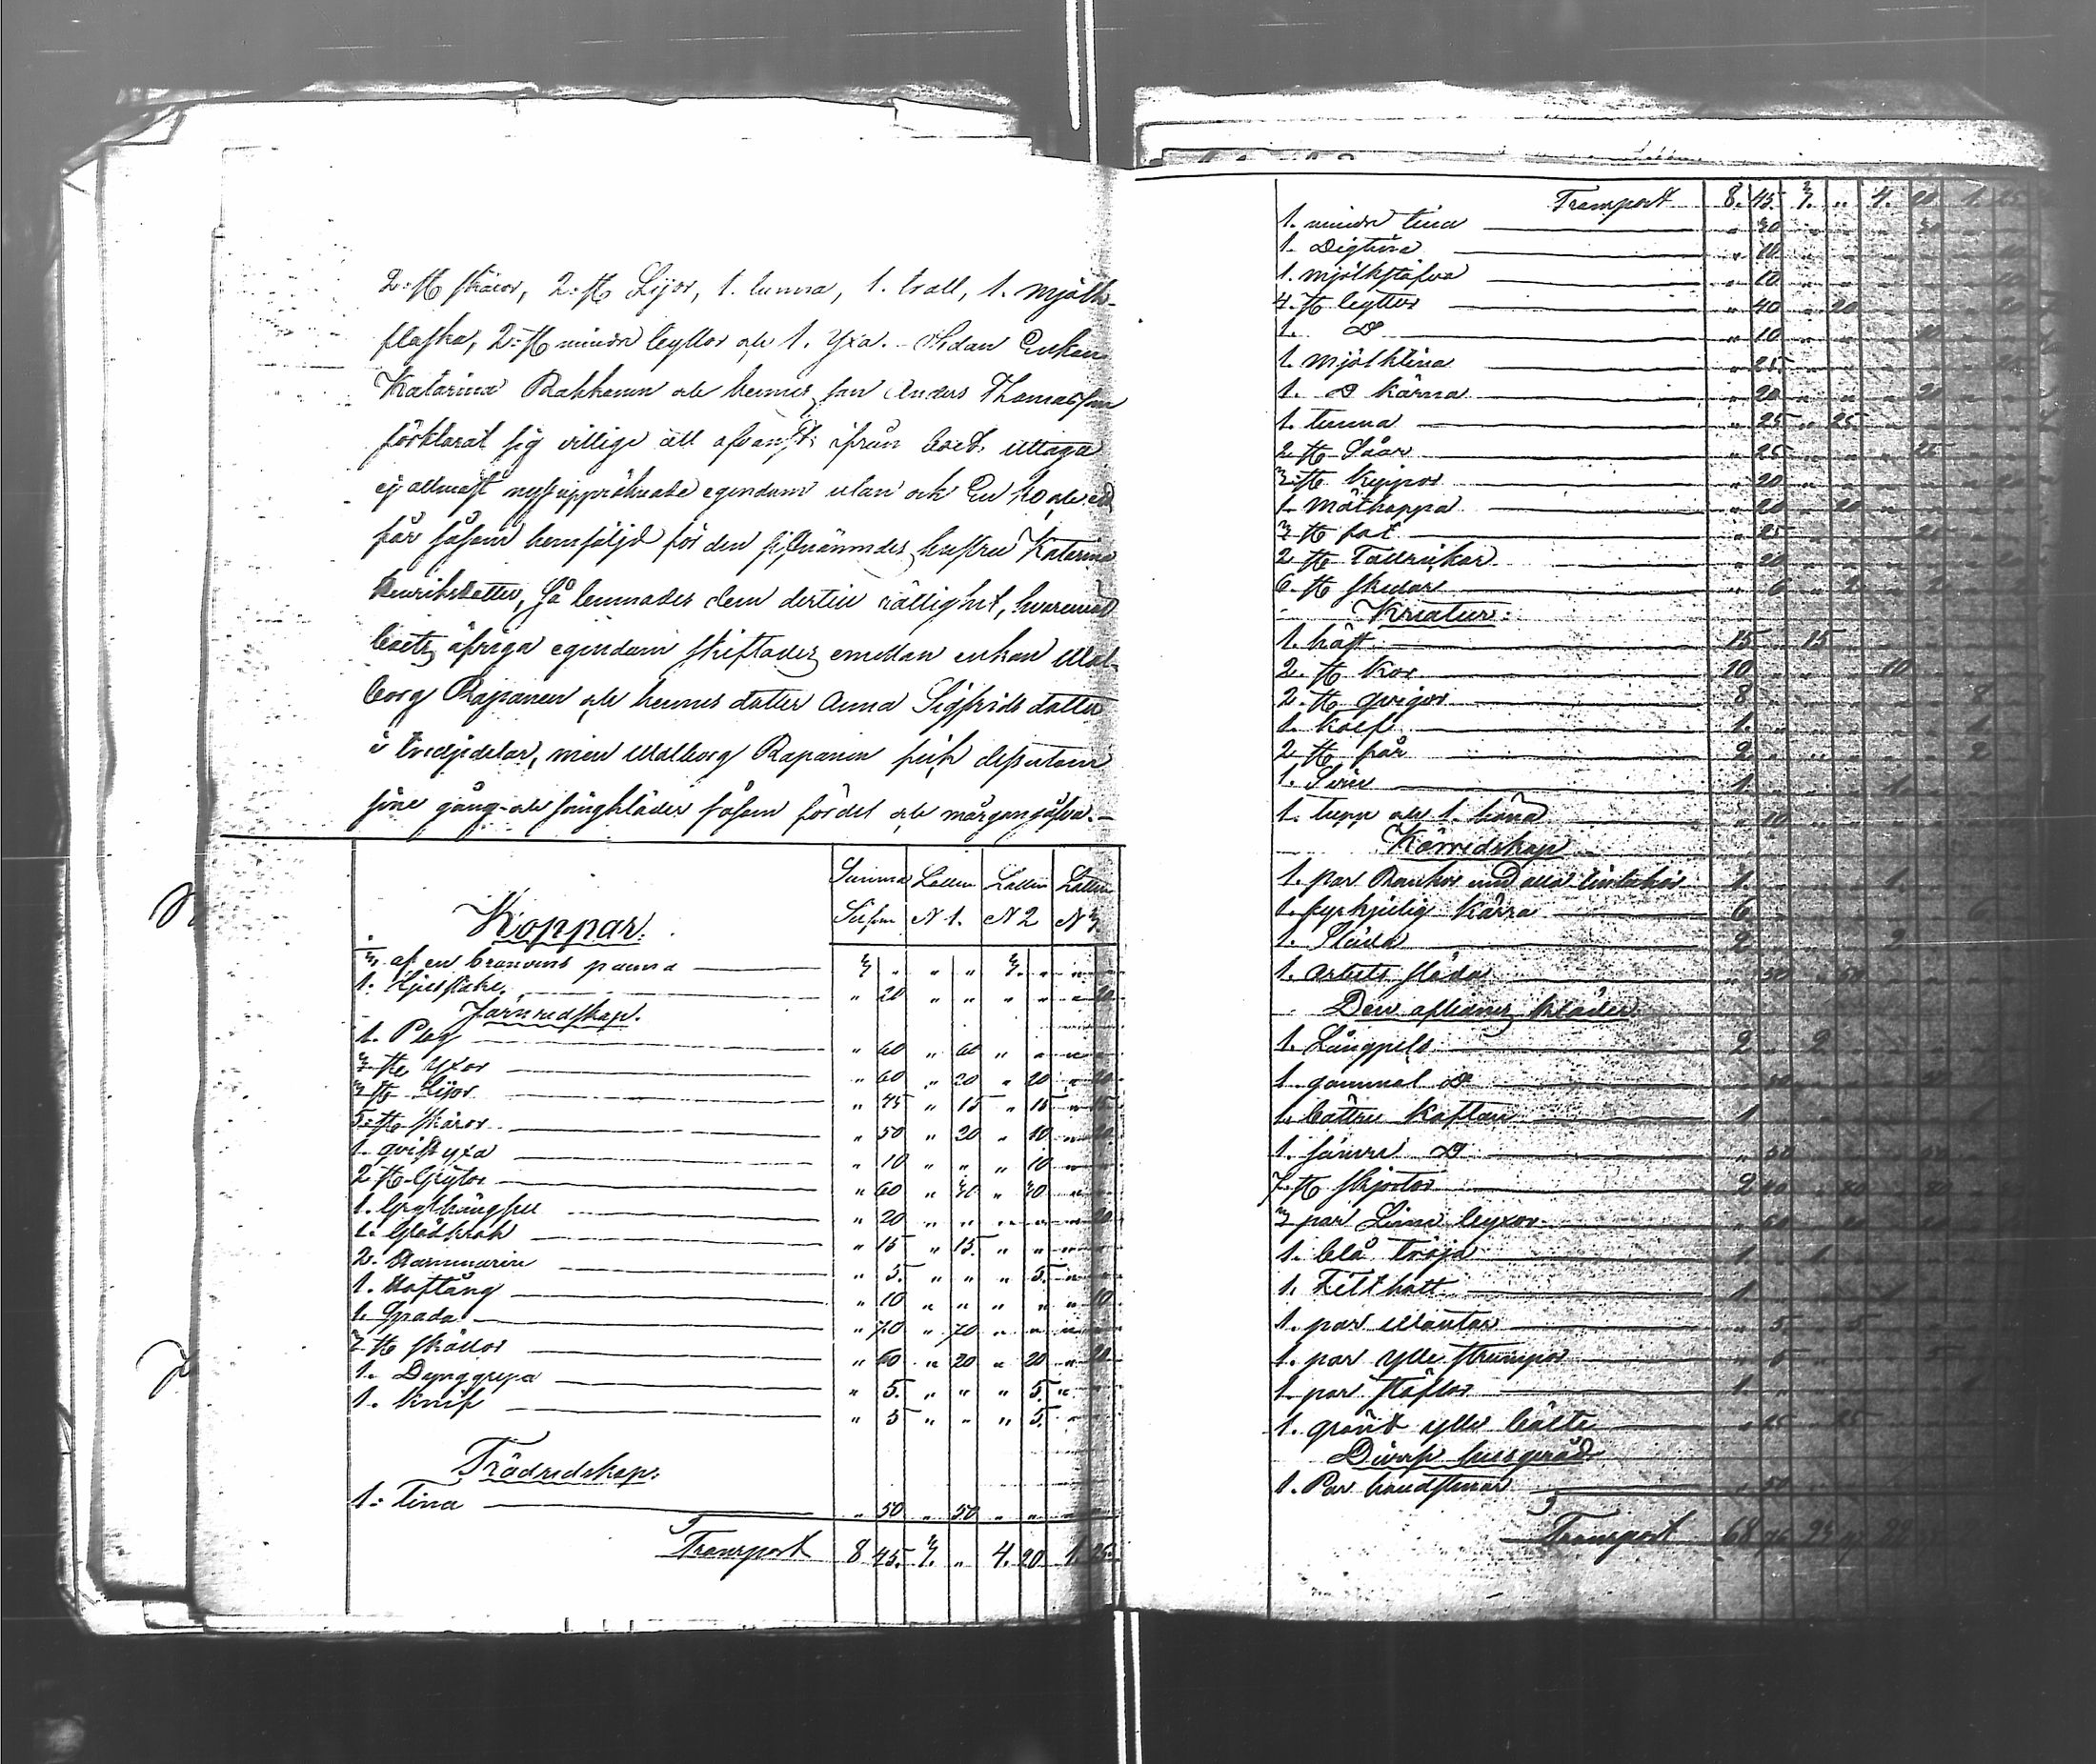 2. st skäror, 2. st Lijor, 1. tunna, 1. trall, 1. mjölk-
flaska, 2. st mindre byttor och 1. Yxa. Sedan Enkan
Katarina Rakkanen och hennes son Anders Thomasson
förklarat sig villige att ifrån boet uttaga
ej allenast nyss uppräknade egendom utan ock En ko och ett
får såsom hemföljd för den sistnämndes hustru Katarina
Henriksdotter, så lemnades dem dertill rättighet, hvaremot
boets öfriga egendom skiftades emellan enkan Wal-
borg Rapanen och hennes dotter Anna Sigfridsdotter
i tredjedelar, men Walborg Rapanen fick dessutom
sine gång- och sängkläder såsom fördel och morgongåfva.
Summa Lotten Lotten Lotten
Silfver N 1. N 2 N 3
Koppar.
3/4 af en bränvins panna 3 " " " 3. " " "
1. Ljusstake " 20 " " " " " 20
Jernredskap.
1. Plog " 60 " 60 " " " "
3. st Yxor " 60 " 20 " 20 " 20
3. st Lijor " 45 " 15 " 15 " 15
5. st skäror " 50 " 20 " 10 " 20
1. qvist yxa " 10 " " " 10 " "
2 st Grytor " 60 " 30 " 30 " "
1. Grythängsel " 20 " " " " " 20
1. Glödkrok " 15 " 15. " " " "
2. Hammaren " 5. " " " 5. " "
1. Hoftång " 10 " " " " " 10
1. Spada " 70 " 70 " " " "
3 st skällor " 60 " 20 " 20 " 20
1. Dynggrepa " 5. " " " 5. " "
1. Knif " 5 " " " 5. " "
Trädredskap.
1. Tina " 50 " 50 " " " "
Transport 8 45. 3. " 4. 20 1. 25
Transport 8. 45. 3. " 4. 20 1. 25
1. mindre tina " 30 30
1. Degtina " 10 10
1. mjölkstäfva " 10 10
4. st byttor " 40 " 20 20
1. D " 10 10
1. mjölktina " 25.
1. D kärna " 20 20
1. tunna " 25 " 25
2 st Såar " 25 25
3. st kippor " 20
1. Måtkappa " 20 20
3 st fat " 25 25
2 st Tallrikar " 20
6. st skedar " 6 2 2
Kreatur.
1. häst 15 15
2. st Kor 10 10
2. st qvigor 8 8
1. Kalf 1. 1
2 st får 2 2
1. Svin 1. 1.
1. tupp och 1. höna " 10
Körredskap
1. par Rankor med alla tillbehör 1. 1.
1. fyrhjulig kärra 6 6
1. Släda 2 2
1. arbets släda " 50 50
Den aflidnes kläder
1. Långpels 2 2
1. gammal D " 50
1. bättre Kaftan 1 1
1. sämre D " 50
7. st skjortor 2
3 par Linne byxor " 60
1. blå tröja 1 1
1. Filt hatt 1 1
1. par Wantar " 5 5
1. par ylle strumpor " 5 5
1. par stöflor 1 1
1. grönt ylle bälte " 25 25
Diverse husgeråd
1. Par handstenar " 50
Transport 68